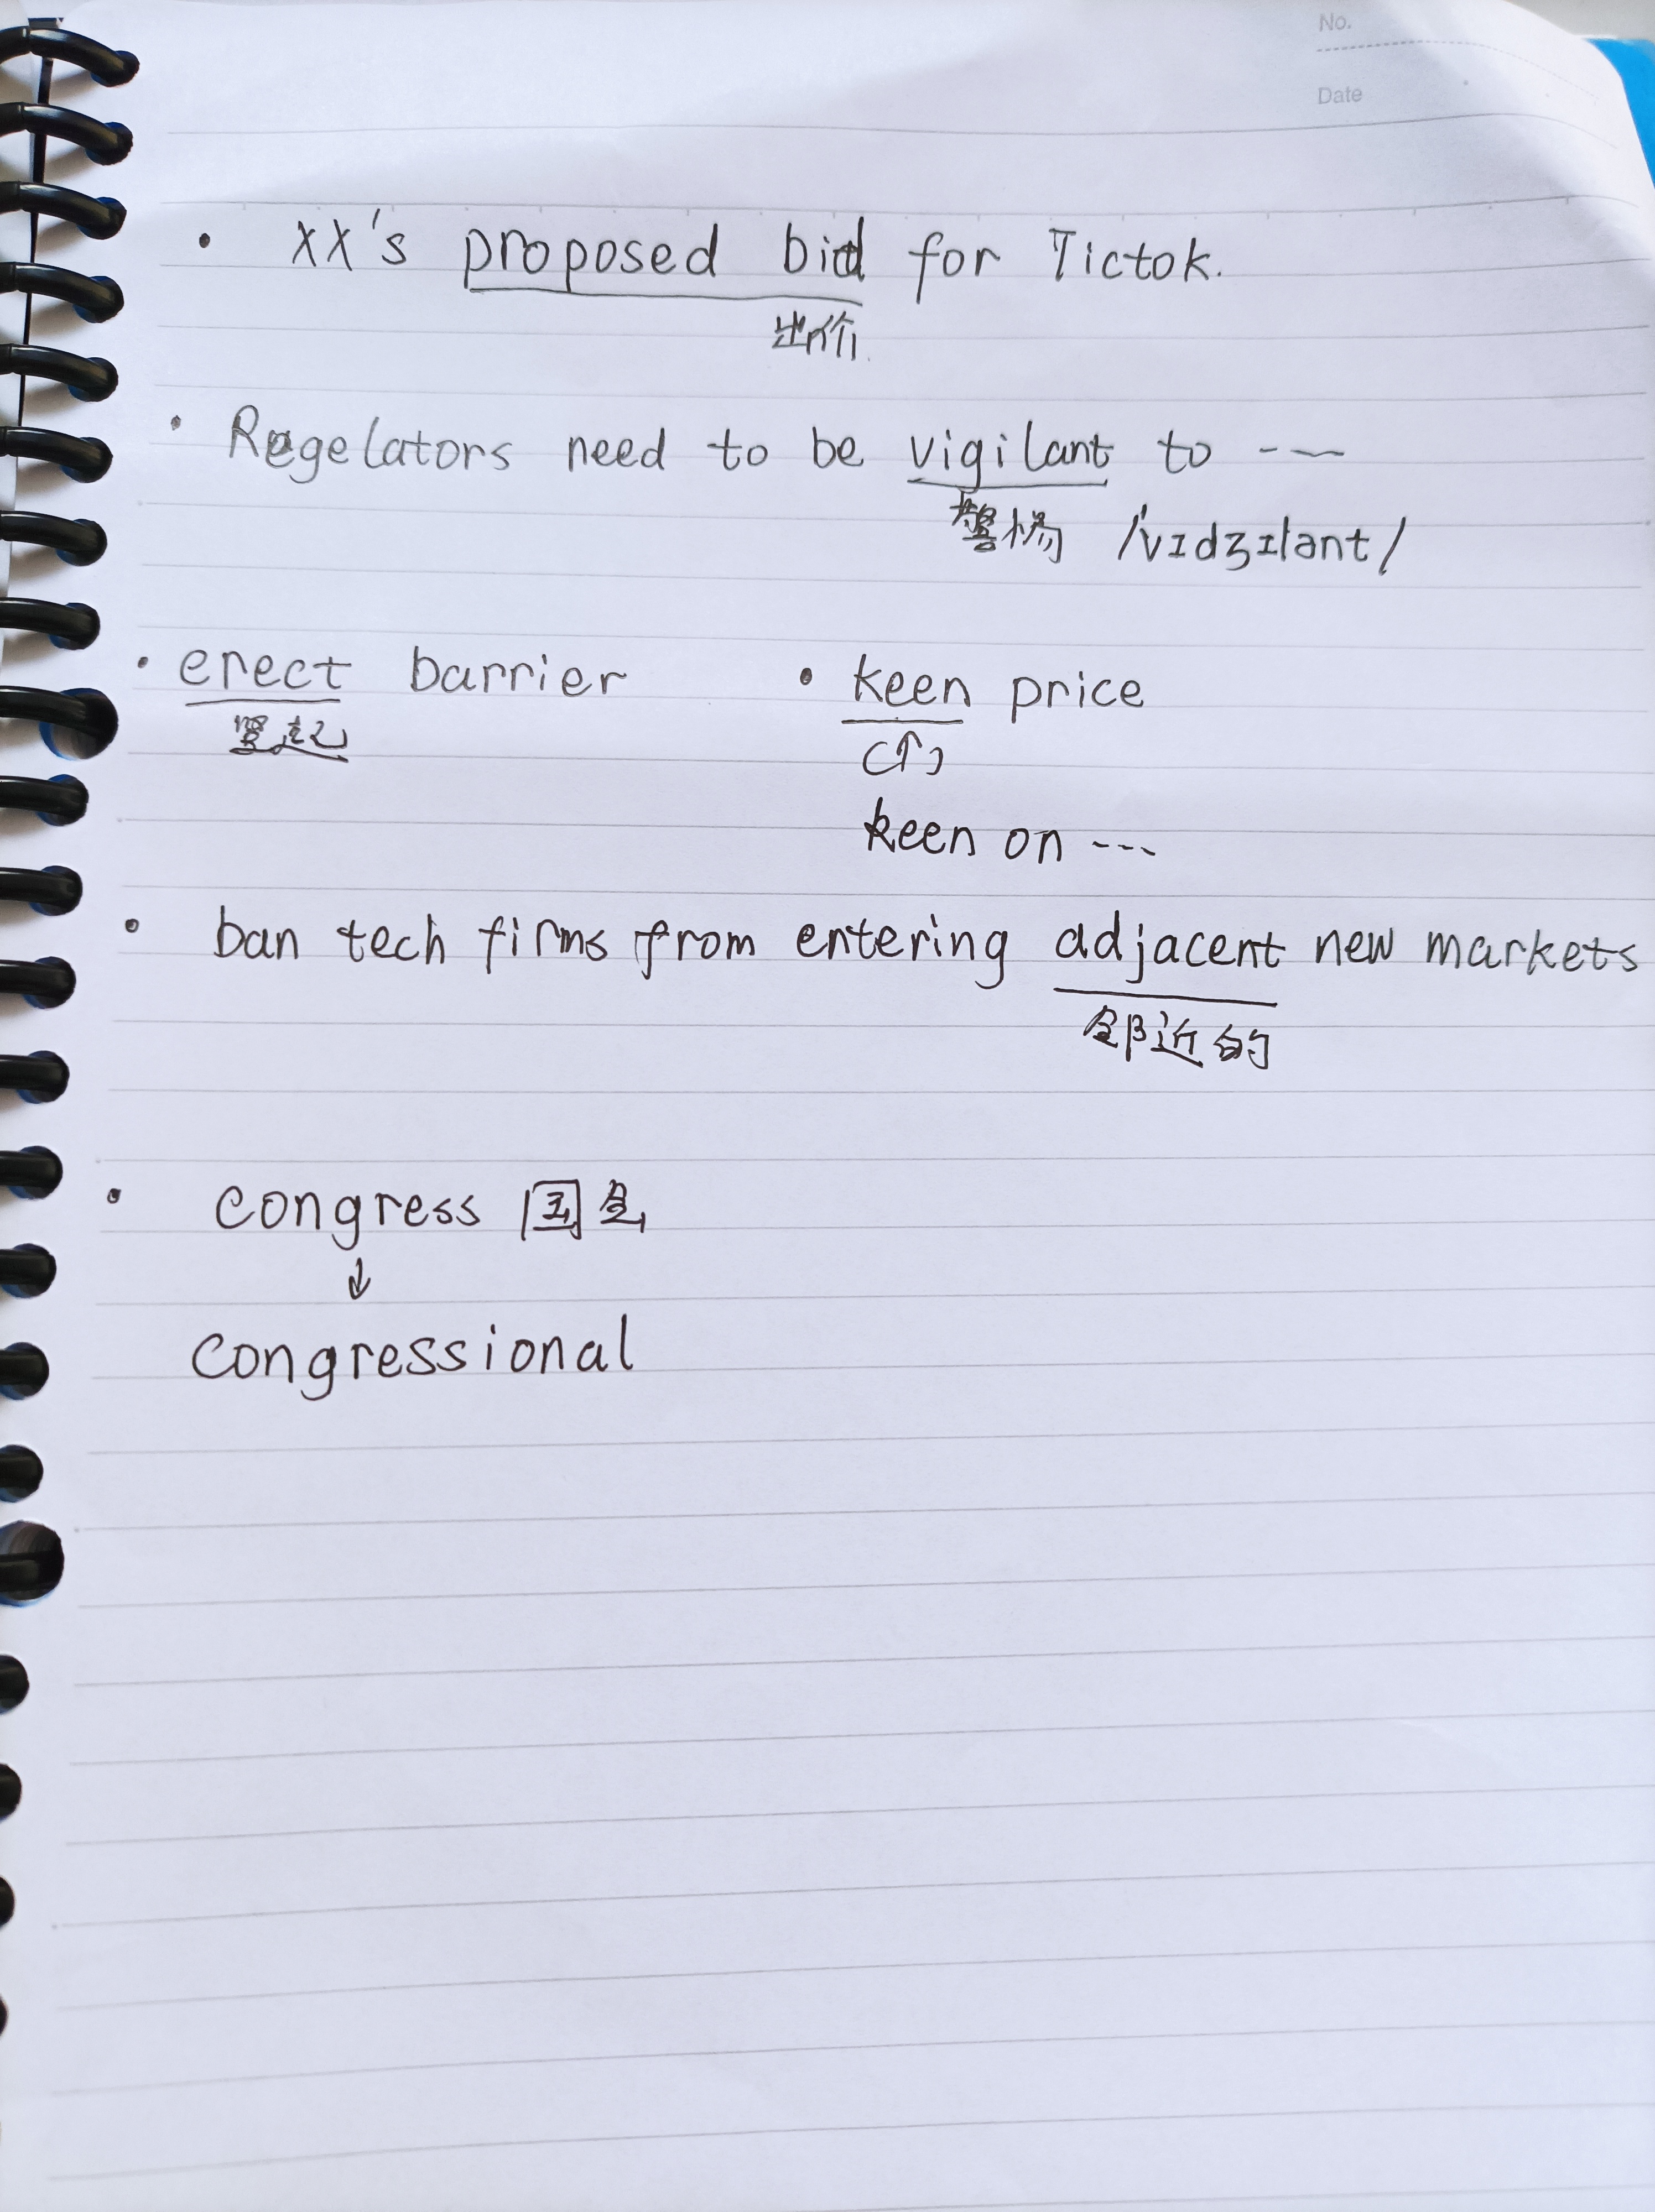 No.
Date
• XX's proposed bid for Tictok.
出价
• Regelators need to be vigilant to ---
警惕 /'vɪdʒɪlənt/
• erect barrier • keen price
竖起 (高)
keen on ---
• ban tech firms from entering adjacent new markets
邻近的
• congress 国会
↓
congressional